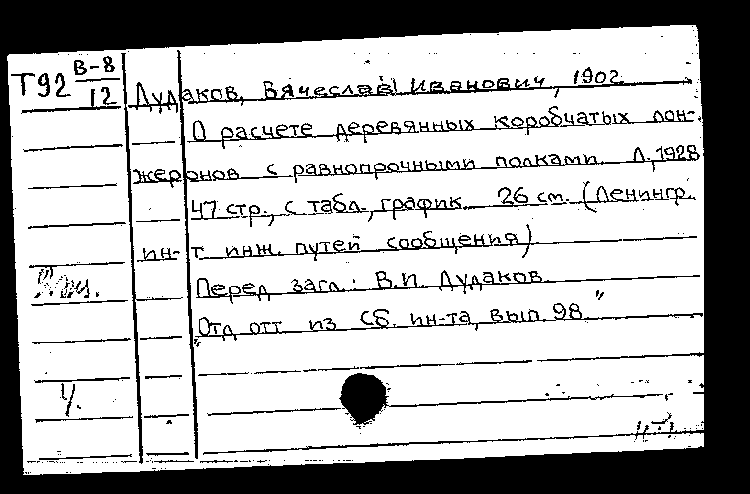 Т92 В-8
12
Дудаков, Вячеслав Иванович, 1902
О расчете деревянных коробчатых лон-
жеронов с равнопрочными полками. Л., 1928
47 стр., с табл., график. 26 см. (Ленингр.
ин-т инж. путей сообщения)
Перед загл.: В.И. Дудаков
"Отд. отт. из Сб. ин-та, вып. 98"
Ч.